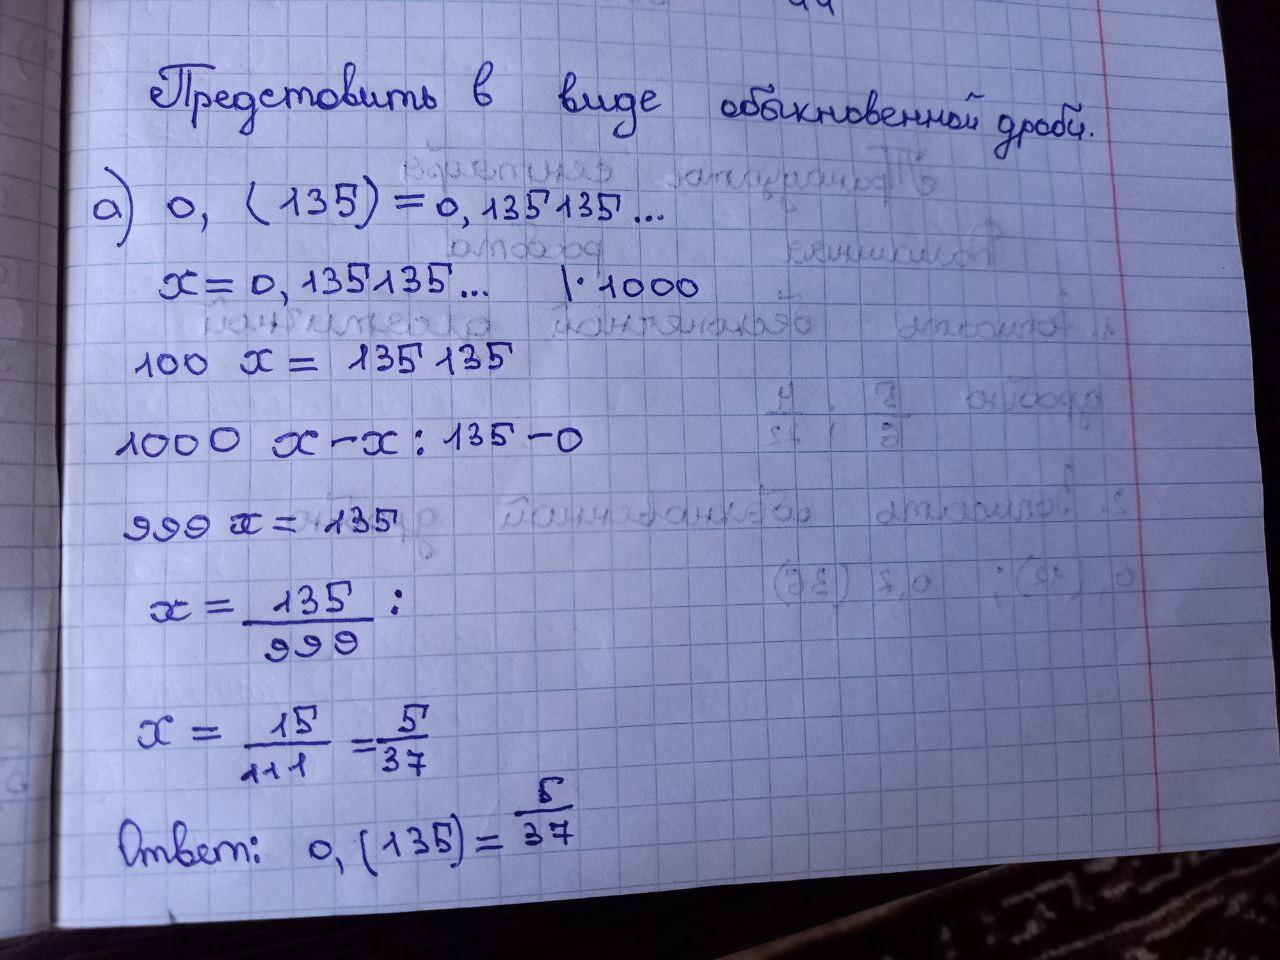 Предстовить в виде обыкновенной дроби.
а) 0, (135) = 0, 135135...
x = 0, 135135... |· 1000
100 x = 135 135
1000 x - x : 135 - 0
999 x = 135
x = 135/999 :
x = 15/111 = 5/37
Ответ: 0, (135) = 5/37